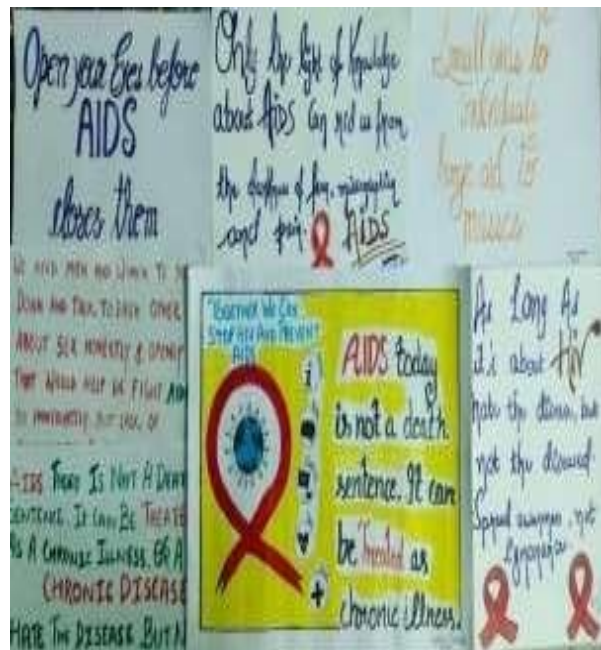 Open your Eyes before
AIDS
closes them
Only the light of Knowledge
about AIDS Can rid us from
the darkness of fear,
and pain.
AIDS
Small aids for
individuals
large aid for
masses
WE NEED MEN AND WOMEN TO
DOWN AND TALK TO EACH OTHER
ABOUT SEX HONESTLY & OPENLY
THAT WOULD HELP US FIGHT AIDS
OF
AIDS TODAY IS NOT A DEATH
SENTENCE. IT CAN BE TREATED
AS A CHRONIC ILLNESS, OR A
CHRONIC DISEASE
HATE THE DISEASE BUT N
TOGETHER WE CAN
STOP HIV AND PREVENT
AIDS
i
AIDS today
is not a death
sentence. It can
be Treated as
chronic illness.
As Long As
it's about HIV
hate the disease, but
not the diseased.
Spread awareness, not